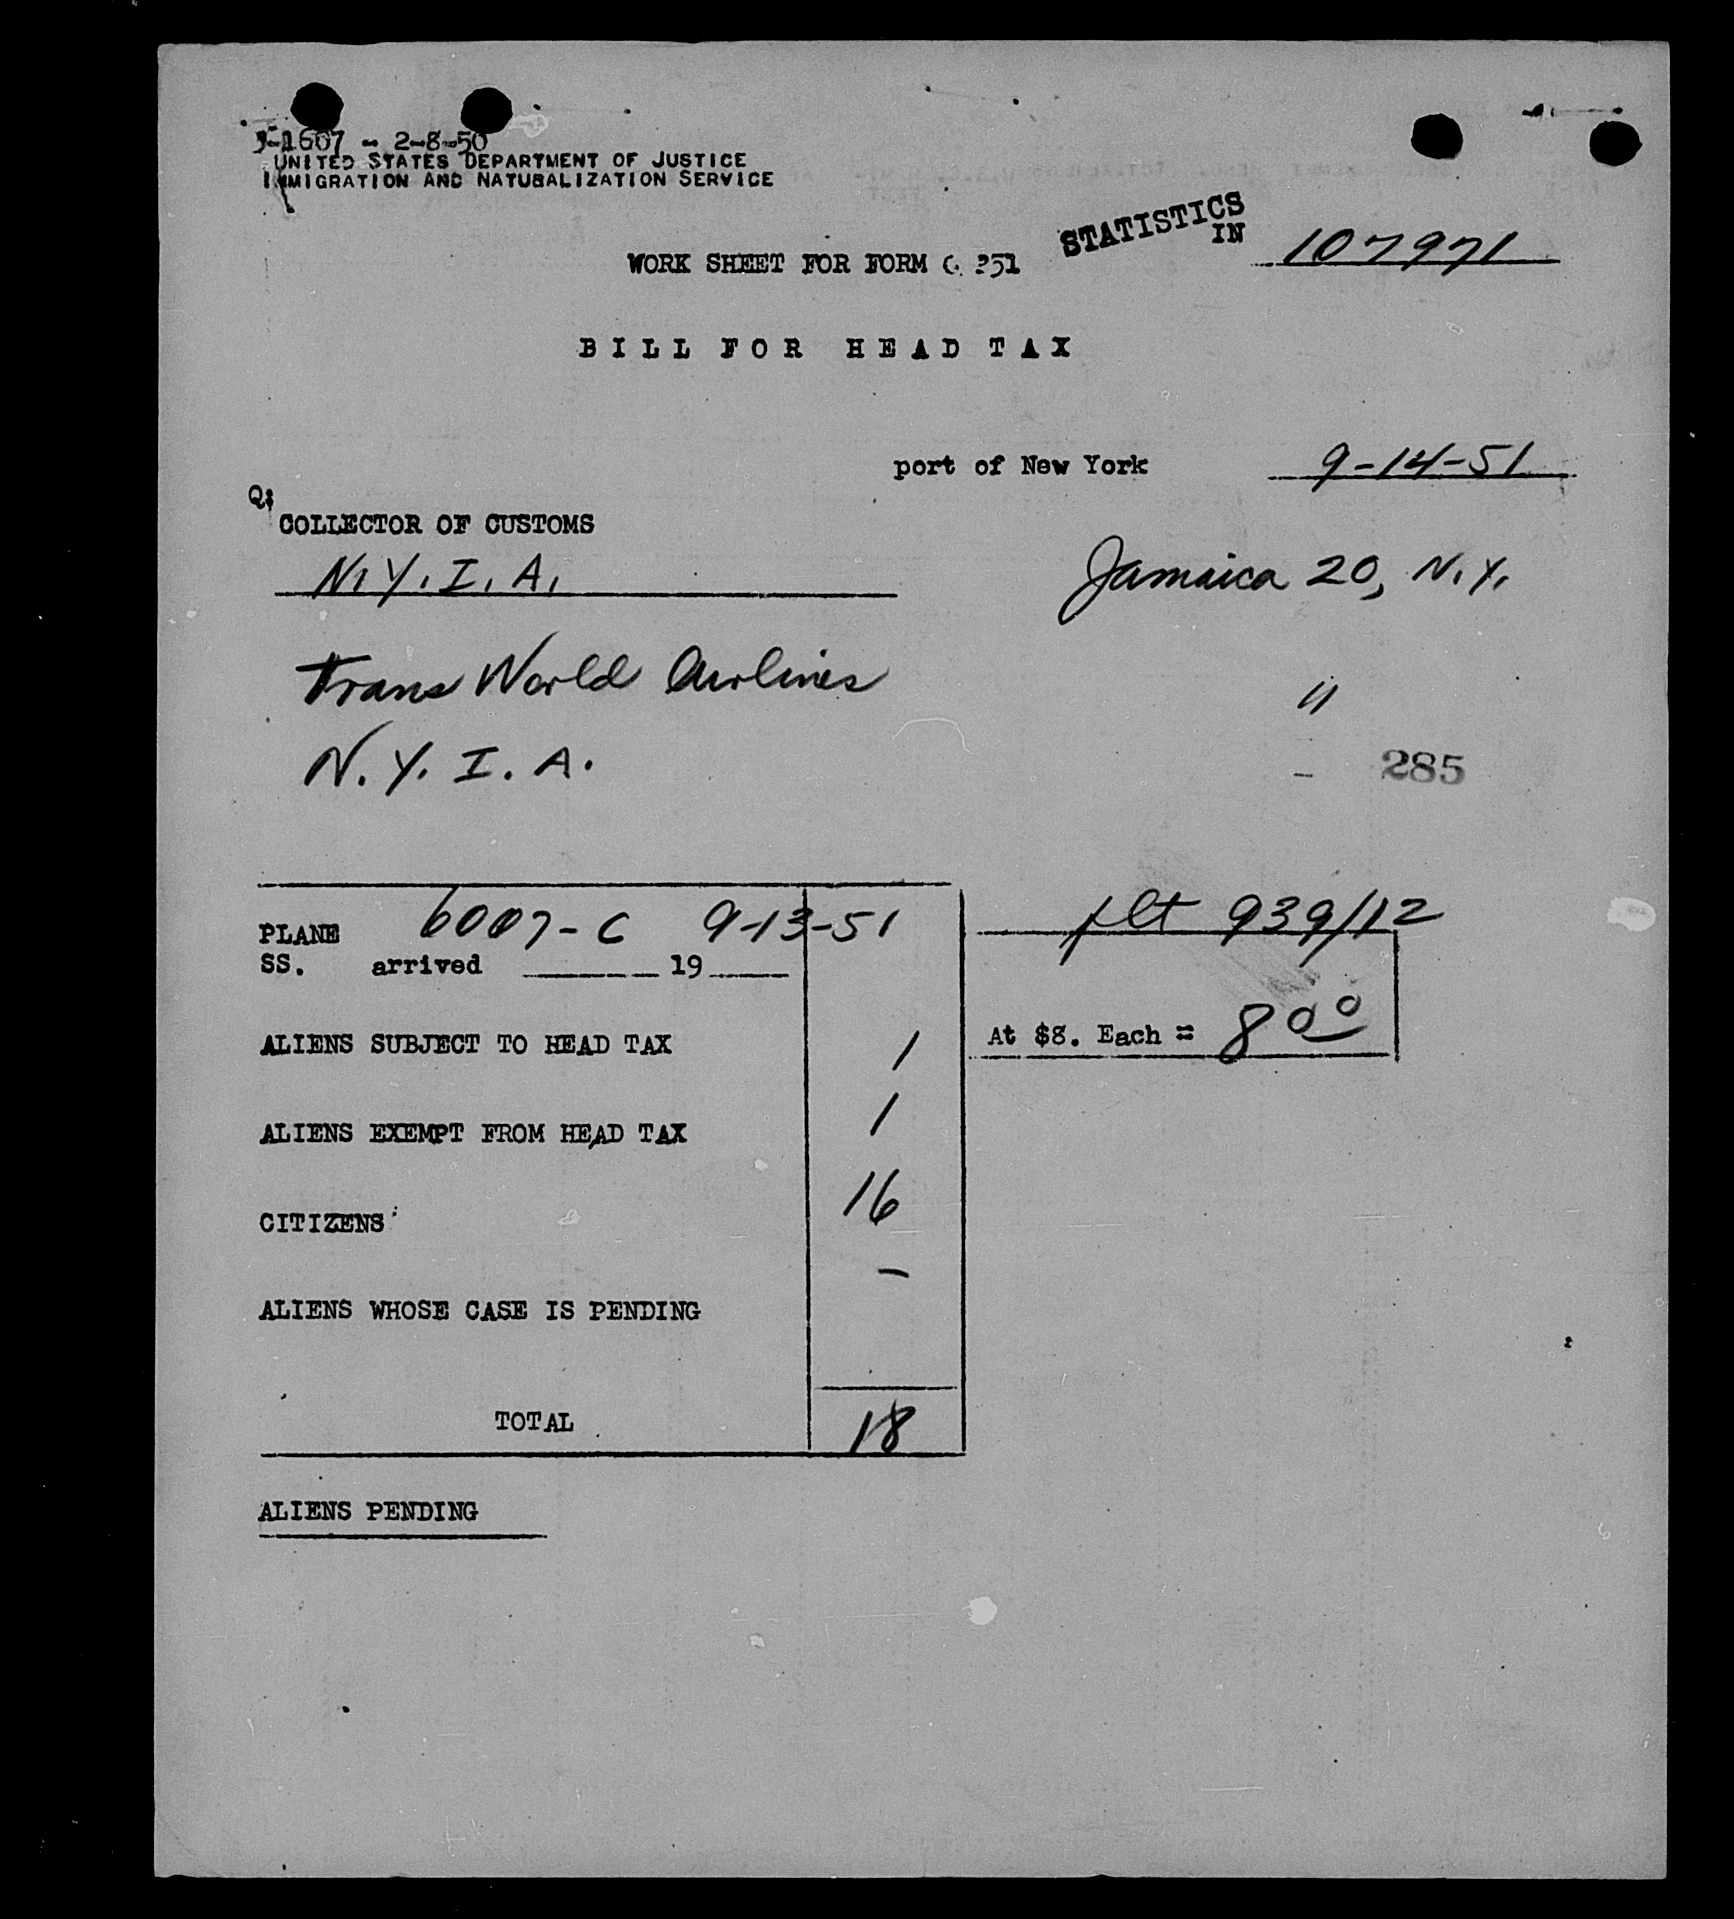 J-1607 - 2-8-50
UNITED STATES DEPARTMENT OF JUSTICE
IMMIGRATION AND NATURALIZATION SERVICE
STATISTICS
IN 107971
WORK SHEET FOR FORM G 351
BILL FOR HEAD TAX
port of New York 9-14-51
COLLECTOR OF CUSTOMS
N.Y.I.A. Jamaica 20, N.Y.
Trans World Airlines "
N.Y.I.A. - 285
PLANE 6007-C 9-13-51 flt 939/12
SS. arrived ______ 19____
ALIENS SUBJECT TO HEAD TAX 1 At $8. Each = 8 00
ALIENS EXEMPT FROM HEAD TAX 1
CITIZENS 16
ALIENS WHOSE CASE IS PENDING -
TOTAL 18
ALIENS PENDING